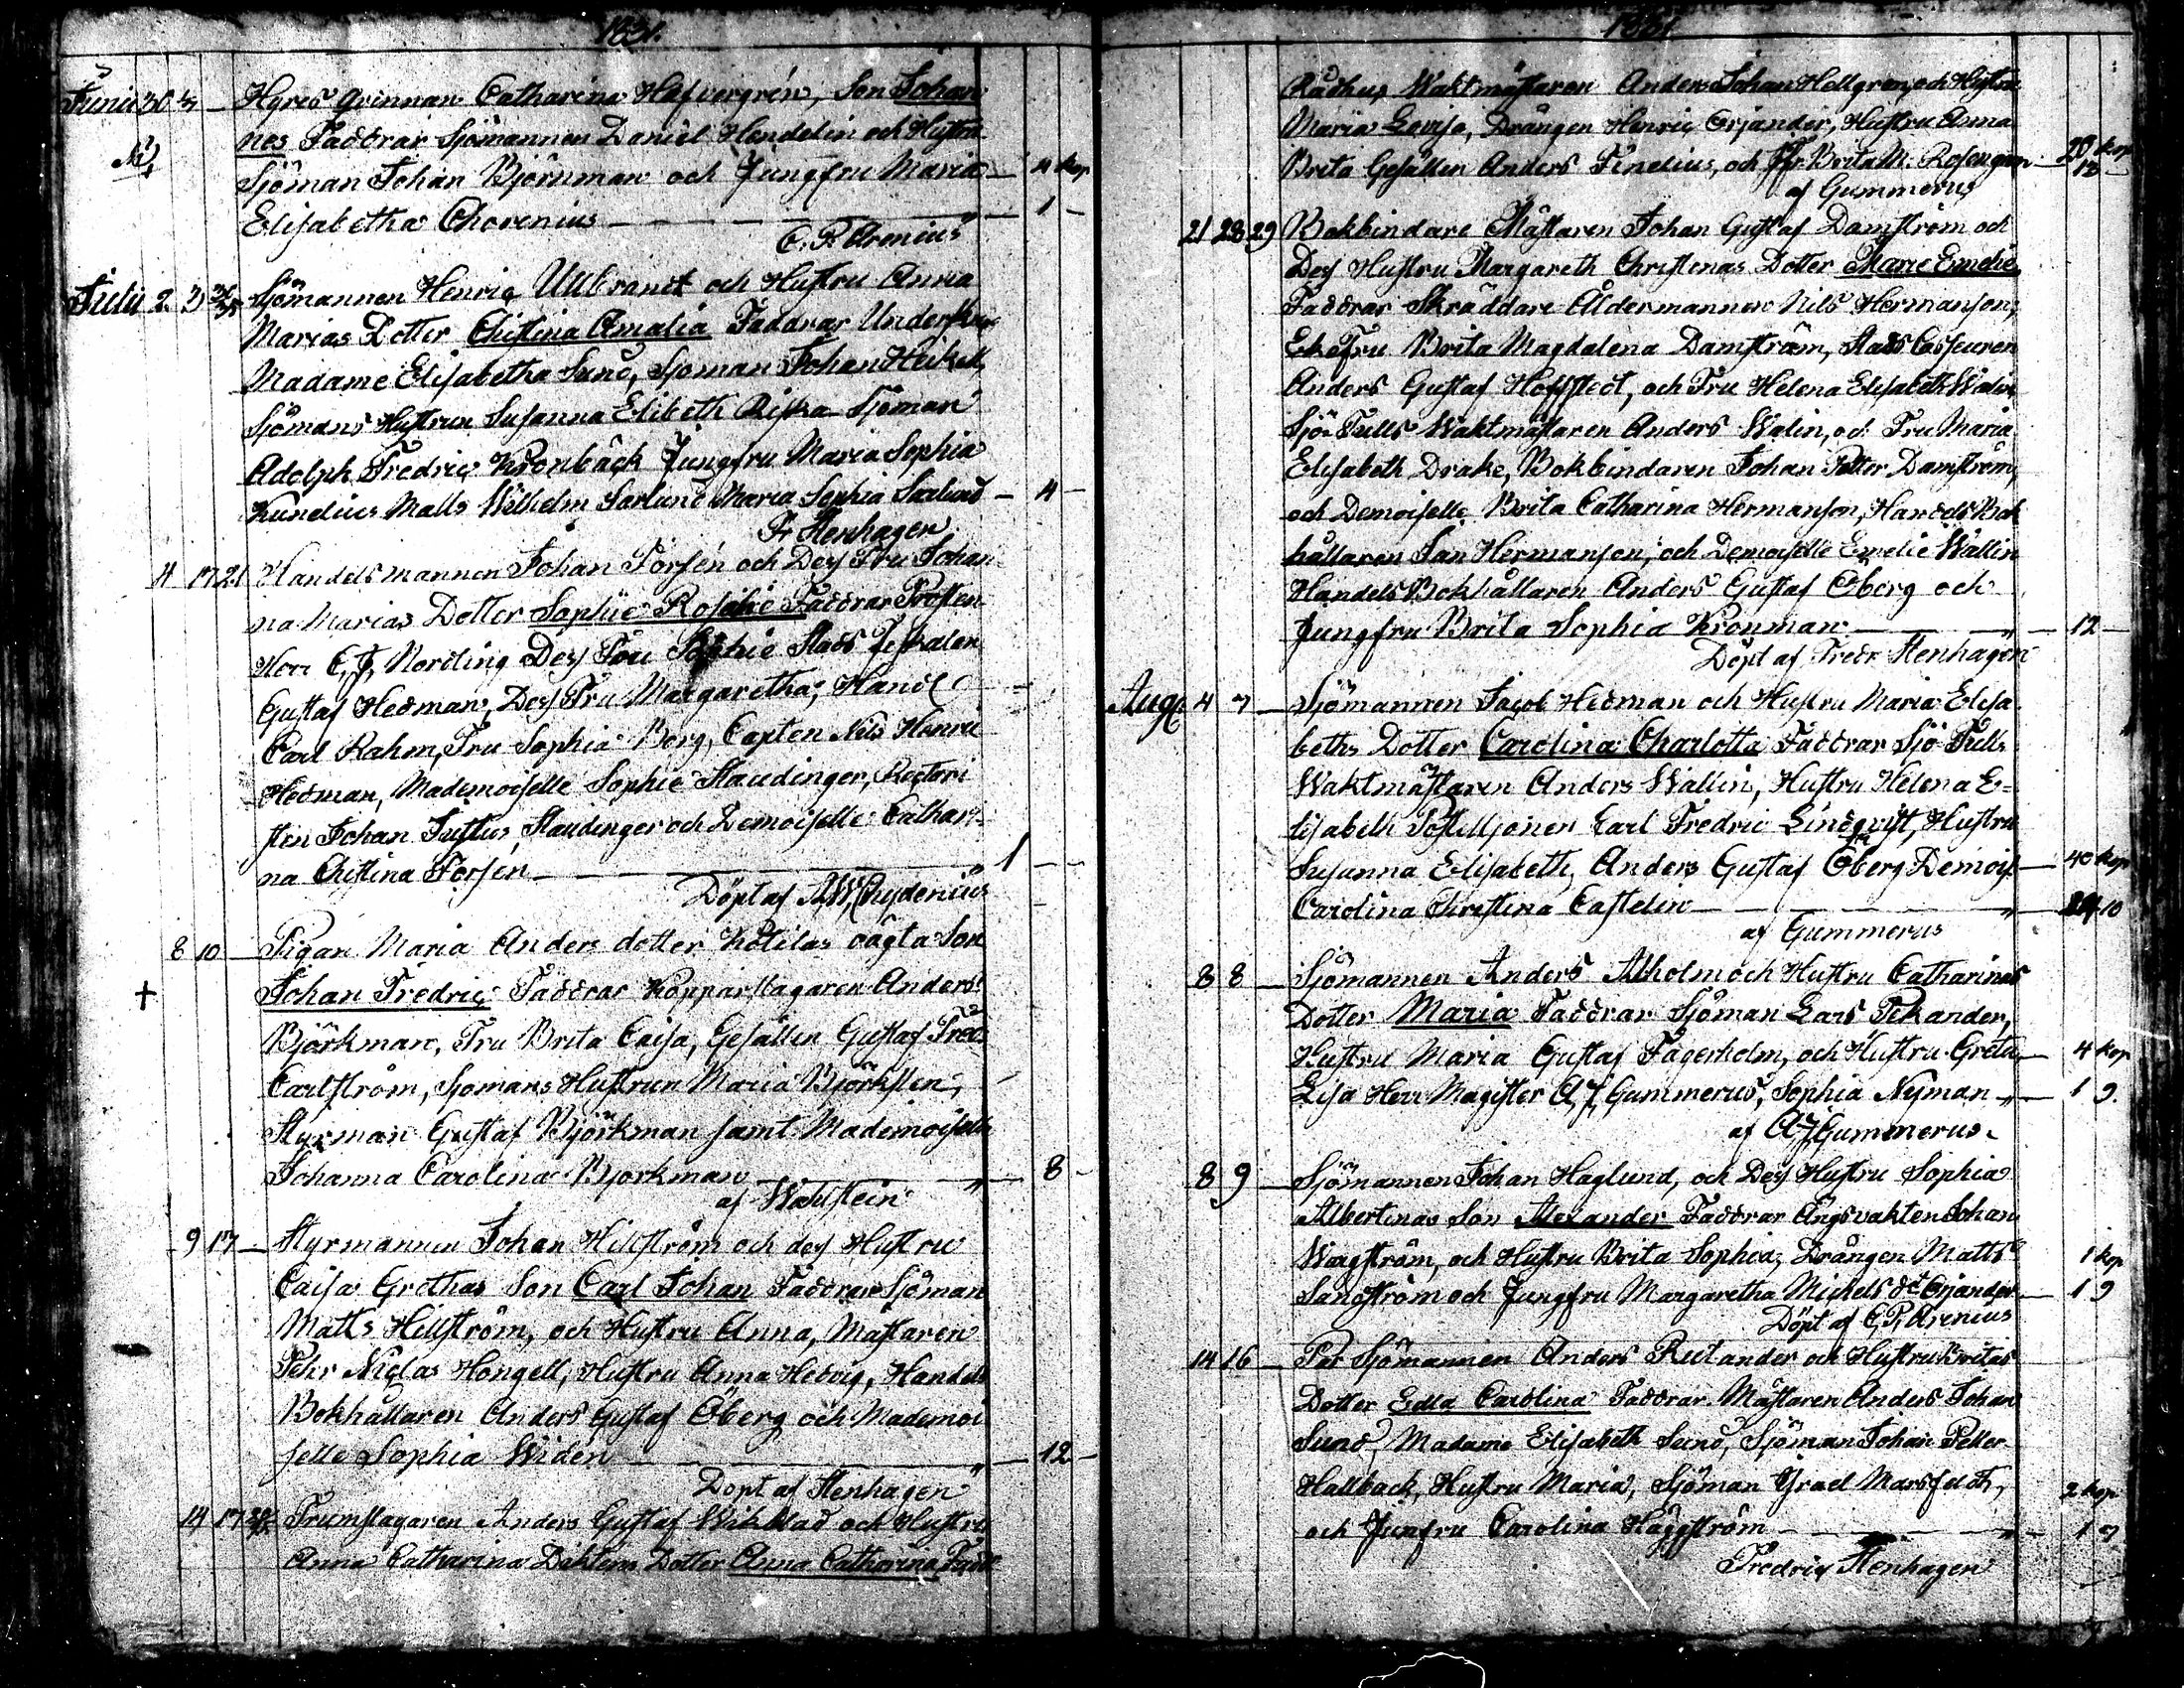 1831.
Junii 30 4/7 Hyres qvinnan Catharina Hafvergrén, Son Johan
nes Faddrar Sjömannen Daniel Hendelin och Hustru
Sjöman Johan Björnman och Jungfru Maria 4 kop
Elisabetha Chorenius 1
C. P. Arenius
Julii 2 3 Sjömannen Henric Ullbrandt och Hustru Anna
Marias Dotter Christina Amalia Faddrar
Madame Elisabetha Sund, Sjöman Johan Heikel,
Sjömans Hustrun Susanna Elisbeth Sjöman
Adolph Fredric Kronbäck Jungfru Maria Sophia
Kunelius Matts Wilhelm Sarlund Maria Sophia Sarlund 4
Fr Stenhagen
4 17 21 Handelsmannen Johan Forsén och Des Fru Johan
na Marias Dotter Sophie Rosalie Faddrar Prosten
Herr C. J. Nordling Des Fru Sophie Stads Fiskalen
Gustaf Hedman, Des Fru Margaretha, Handl
Carl Rahm, Fru Sophia Borg, Capten Nils Henric
Hedman, Mademoiselle Sophie Staudinger,
Johan Justus Staudinger och Demoiselle Cathari
na Christina Forsén 1
Döpt af A. W. Chydenius
8 10 Pigan Maria Anders dotter Kotilas oägta Son
+ Johan Fredric Faddrar Kopparslagaren Anders
Björkman, Fru Brita Caisa, Gesällen Gustaf Fred
Carlström, Sjömans Hustrun Maria Björksten,
Styrman Gustaf Björkman samt Mademoiselle
Johanna Carolina Björkman 8
af Wahlstein
9 17 Styrmannen Johan Hillström och des Hustru
Caisa Grethas Son Carl Johan Faddrar Sjöman
Matts Hillström, och Hustru Anna, Mästaren
Pehr Niclas Hongell, Hustru Anna Hedvig, Handels
Bokhållaren Anders Gustaf Öberg och Mademoi
selle Sophia Widen 12
Döpt af Stenhagen
14 17 Trumslagaren Anders Gustaf Wikblad och Hustru
Anna Catharina Dotter Anna Catharina Fadd
1831
Rådhus Waktmästaren Anders Johan Hellgren, och Hustru
Maria Lovisa, Drängen Henric Orjander, Hustru Anna
Brita Gesällen Anders Finelius, och Jfr Brita M. Rosengren 20 kop
af Gummerus 12
21 28 29 Bokbindare Mästaren Johan Gustaf Damström och
Des Hustru Margareth Christinas Dotter Marie Emelie
Faddrar Skräddare Åldermannen Nils Hermanson,
Enke Fru Brita Magdalena Damström, Stads Casseuren
Anders Gustaf Hoffstedt, och Fru Helena Elisabeth Walin
Sjö-Tulls Waktmästaren Anders Walin, och Fru Maria
Elisabeth Drake, Bokbindaren Johan Petter Damström,
och Demoiselle Brita Catharina Hermanson, Handels Bok
hållaren Jan Hermanson, och Demoiselle Emelie Wallin
Handels Bokhållaren Anders Gustaf Öberg och
Jungfru Brita Sophia Kronman 12
Döpt af Fredr Stenhagen
Aug. 4 7 Sjömannen Jacob Hedman och Hustru Maria Elisa
beths Dotter Carolina Charlotta Faddrar Sjö-Tulls
Waktmästaren Anders Wallin, Hustru Helena E=
lisabeth Postilljonen Carl Fredric Lindqvist, Hustru
Susanna Elisabeth, Anders Gustaf Öberg Demois 40 kop
Carolina Christina Castelin 10
af Gummerus
8 8 Sjömannen Anders Alholm och Hustru Catharinas
Dotter Maria Faddrar Sjöman Lars Pekander,
Hustru Maria Gustaf Fagerholm, och Hustru Greta 4 kop
Lisa Herr Magister A. J. Gummerus, Sophia Nyman 1 9.
af A J Gummerus.
8 9 Sjömannen Johan Haglund, och Des Hustru Sophia
Albertinas Son Alexander Faddrar Ängsvakten Johan
Wargström, och Hustru Brita Sophia, Drängen Matts 1 kop
Sandström och Jungfru Margaretha Michels dr Orjander 1 9
Döpt af C. P. Arenius
14 16 Par Sjömannen Anders Rutander och Hustru Britas
Dotter Edla Carolina Faddrar Mästaren Anders Johan
Sund, Madame Elisabeth Sund, Sjöman Johan Petter
Hallback, Hustru Maria, Sjöman Israel Marsfeldt, 2 kop
och Junfru Carolina Häggström 1 7
Fredric Stenhagen